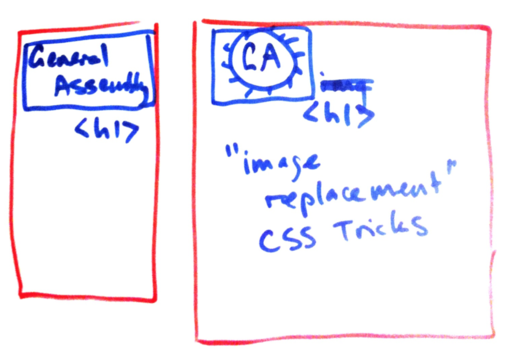 General
Assembly
<h1>
GA
img
<h1>
"image
replacement"
CSS Tricks